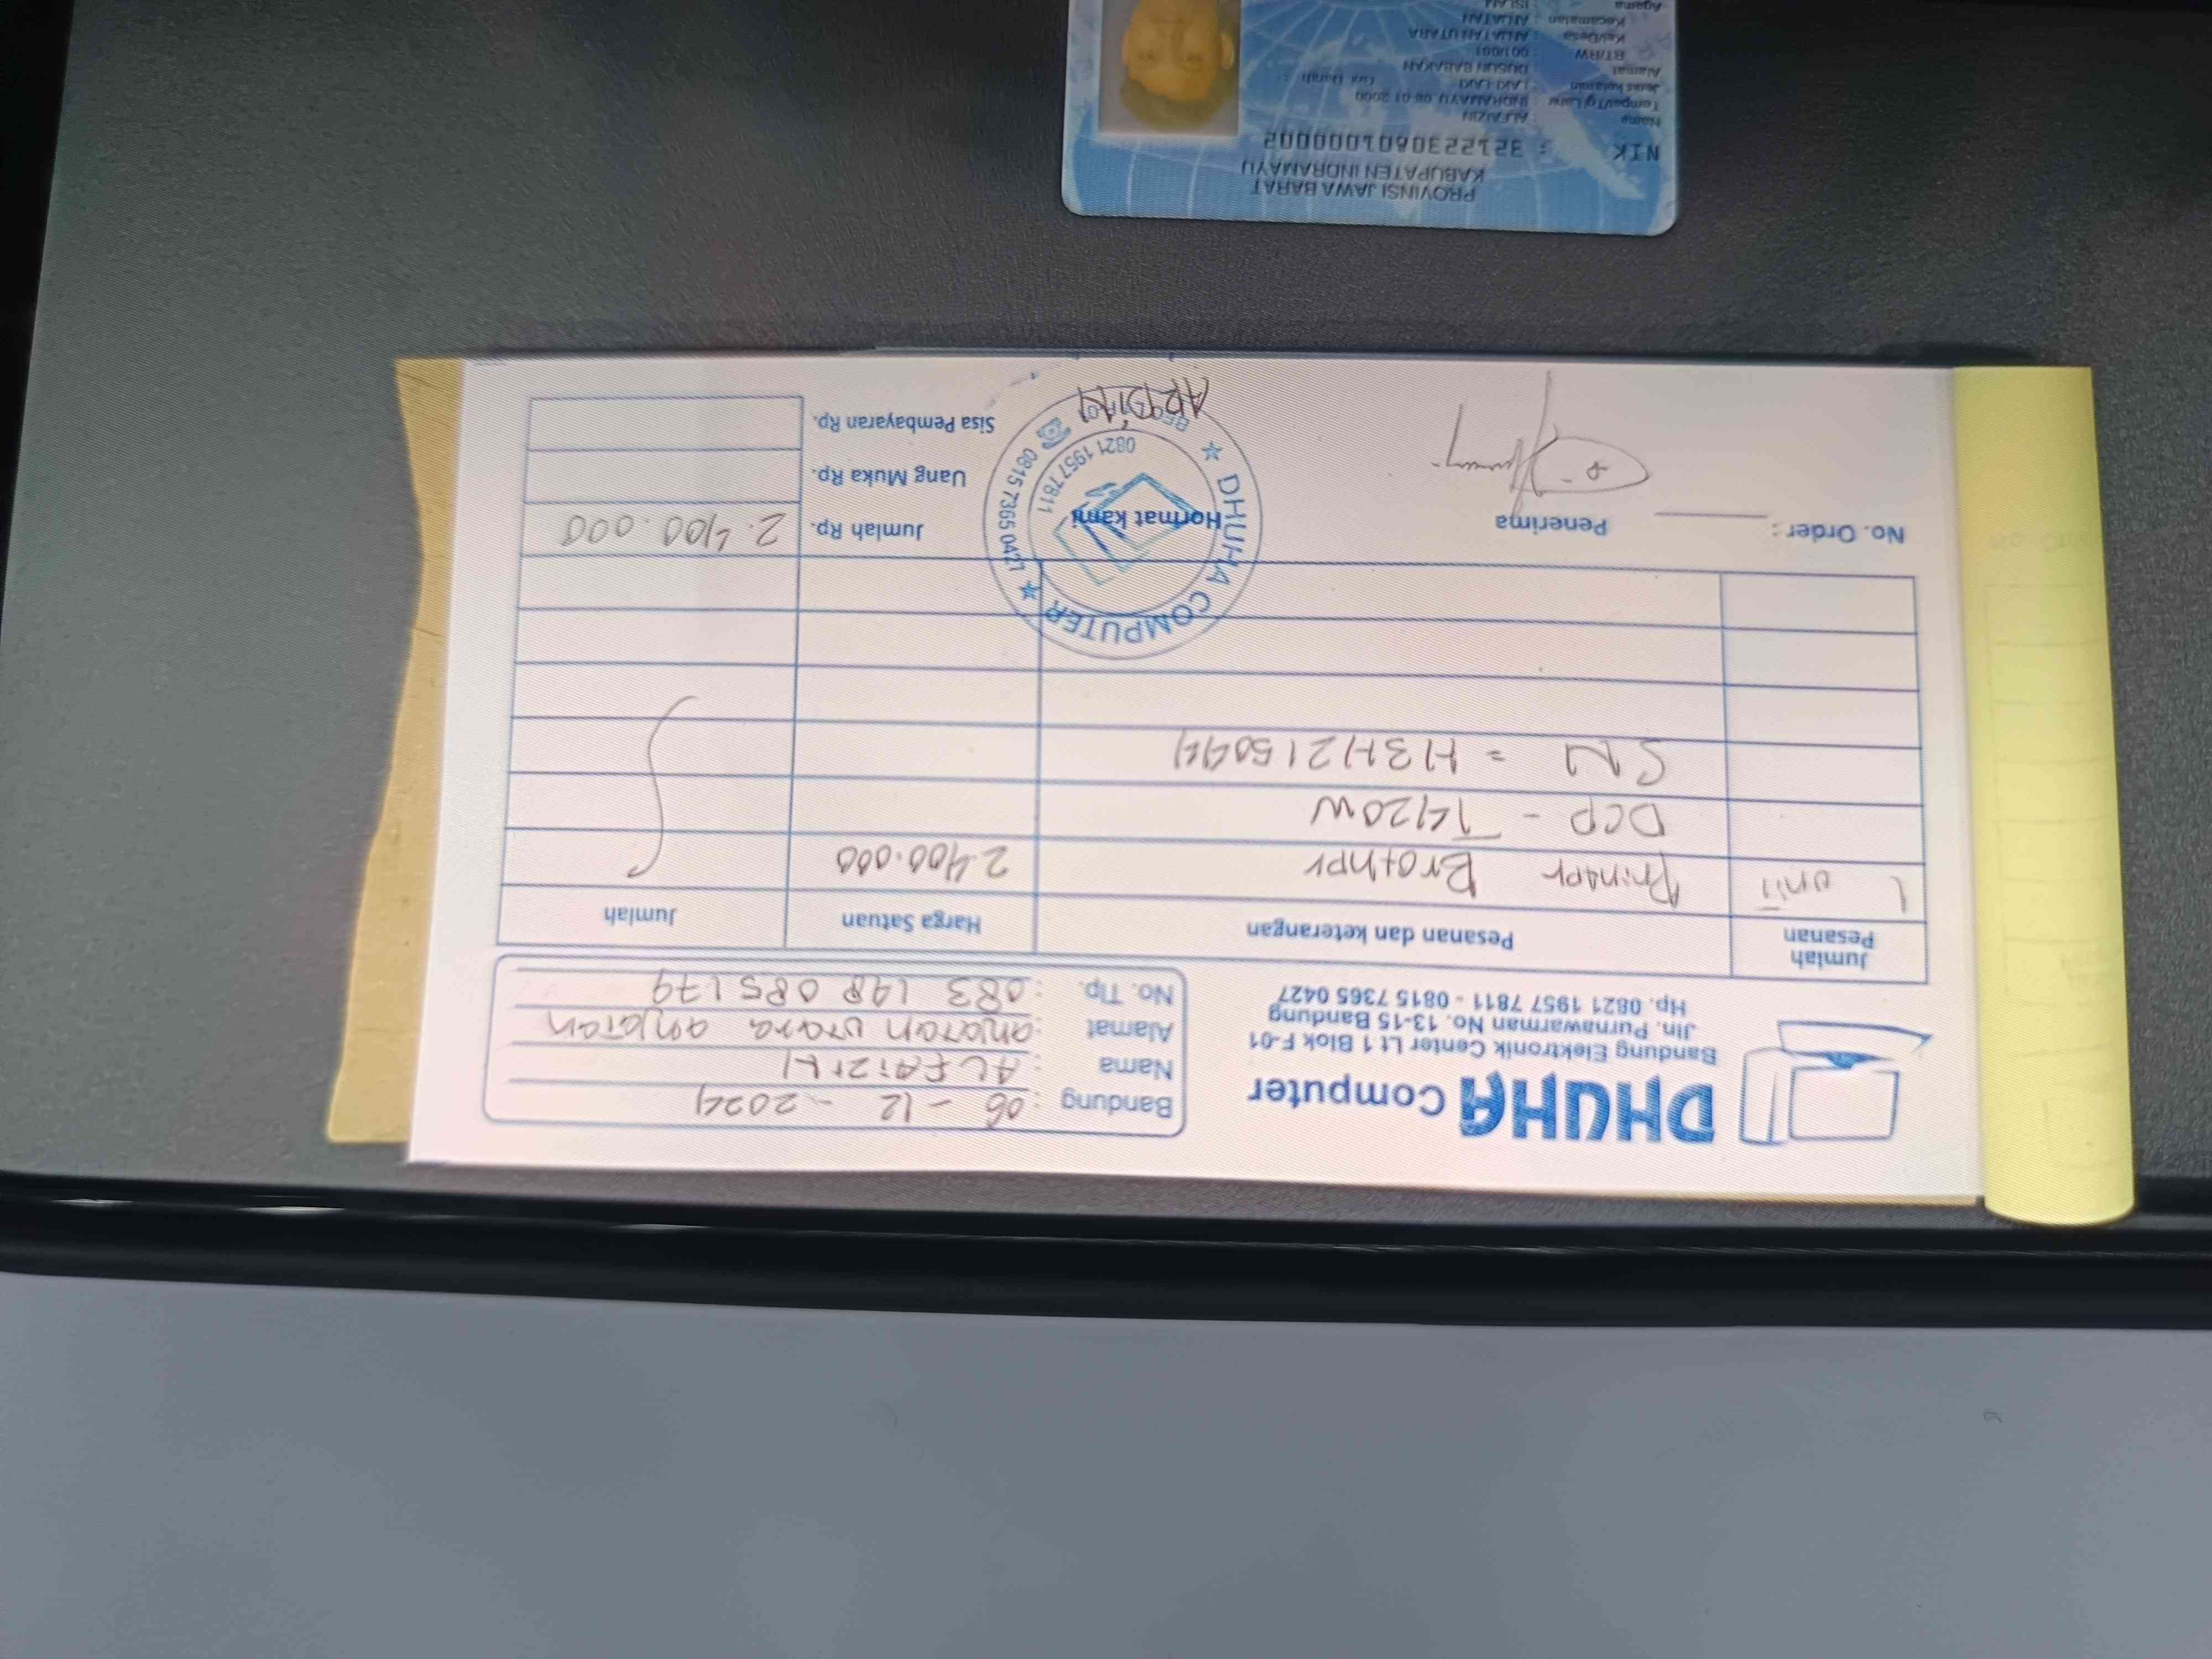 DHUHA Computer
Bandung Elektronik Center Lt 1 Blok F-01
Jln. Purnawarman No. 13-15 Bandung
Hp. 0821 1957 7811 - 0815 7365 0427
Bandung : 06 - 12 - 2024
Nama : ALFAiZIN
Alamat : anjatan utara anjatan
No. Tlp. : 083 198 085 179
Jumlah Pesanan Pesanan dan keterangan Harga Satuan Jumlah
1 unit Printer Brother 2.400.000
DCP - T420W
SN = H3H215044
No. Order : Penerima Hormat kami Jumlah Rp. 2.400.000
Uang Muka Rp.
Sisa Pembayaran Rp.
DHUHA COMPUTER
0821 1957 7811
0815 7365 0427
ARDIAN
PROVINSI JAWA BARAT
KABUPATEN INDRAMAYU
NIK : 3212230601000002
Nama : ALFAIZIN
Tempat/Tgl Lahir : INDRAMAYU, 06-01-2000
Jenis kelamin : LAKI-LAKI Gol Darah :
Alamat : DUSUN BABAKAN
RT/RW : 001/001
Kel/Desa : ANJATAN UTARA
Kecamatan : ANJATAN
Agama : ISLAM